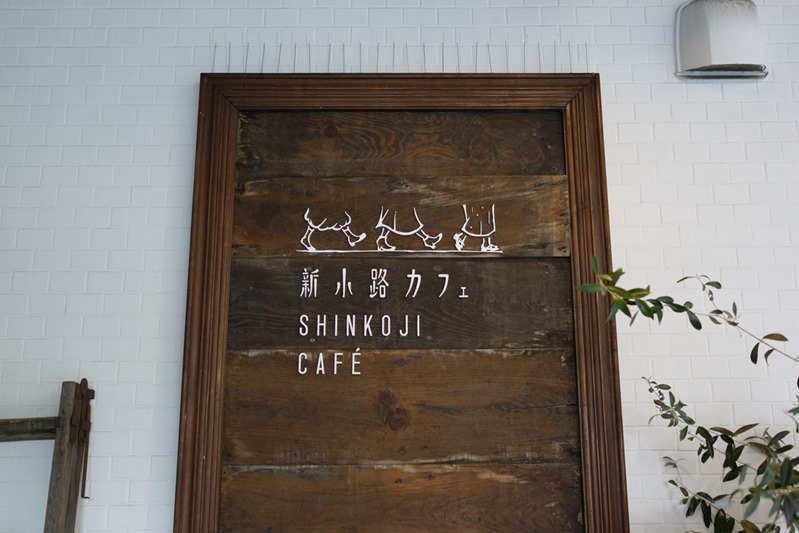 新小路カフェ
SHINKOJI
CAFÉ